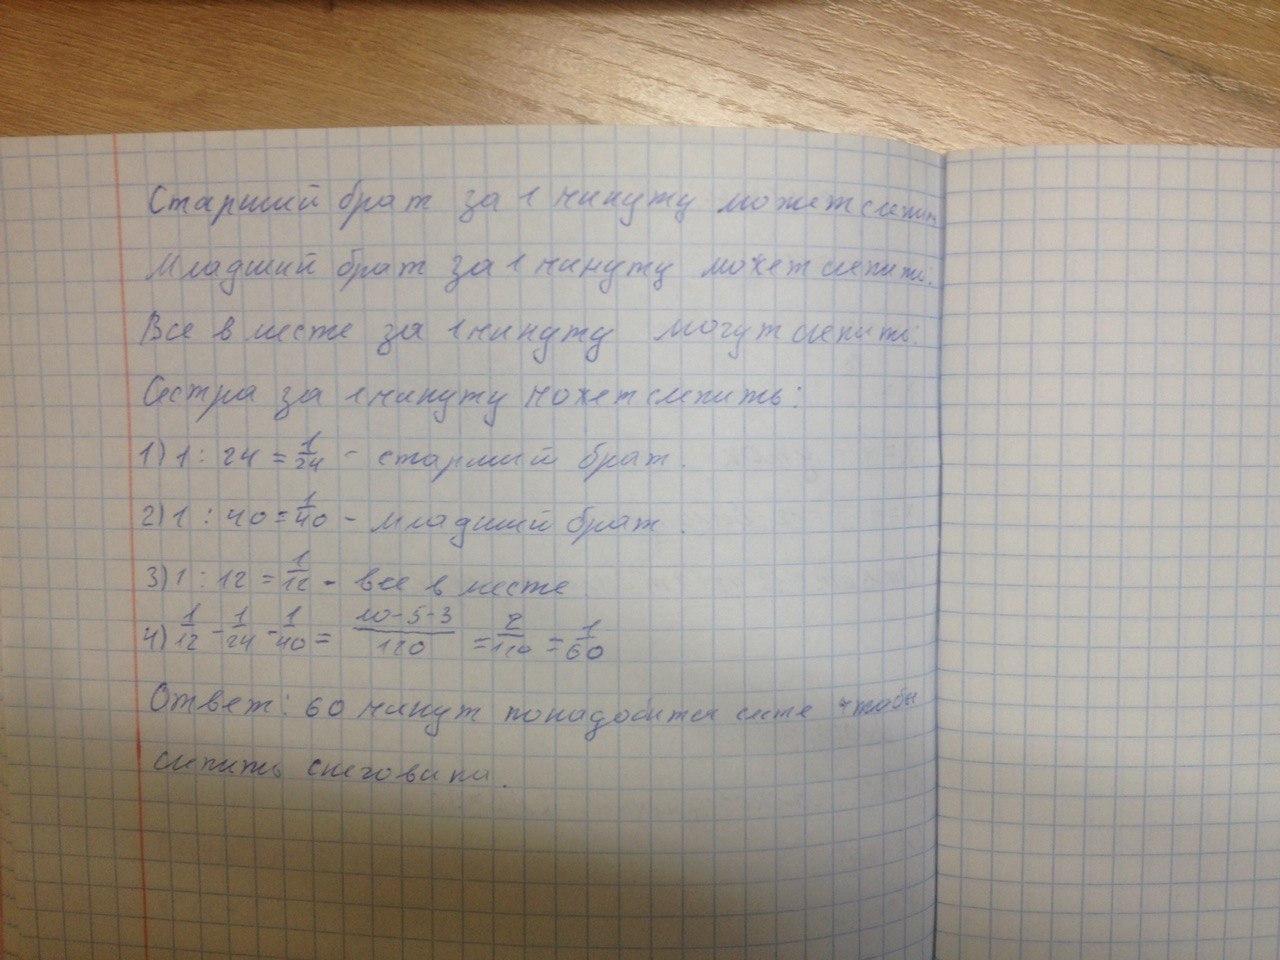 Старший брат за 1 минуту может слепить
Младший брат за 1 минуту может слепить:
Все вместе за 1 минуту могут слепить:
Сестра за 1 минуту может слепить:
1) 1 : 24 = 1/24 - старший брат.
2) 1 : 40 = 1/40 - младший брат.
3) 1 : 12 = 1/12 - все вместе
4) 1/12 - 1/24 - 1/40 = (10-5-3)/120 = 2/120 = 1/60
Ответ: 60 минут понадобится чтобы
слепить снеговика.